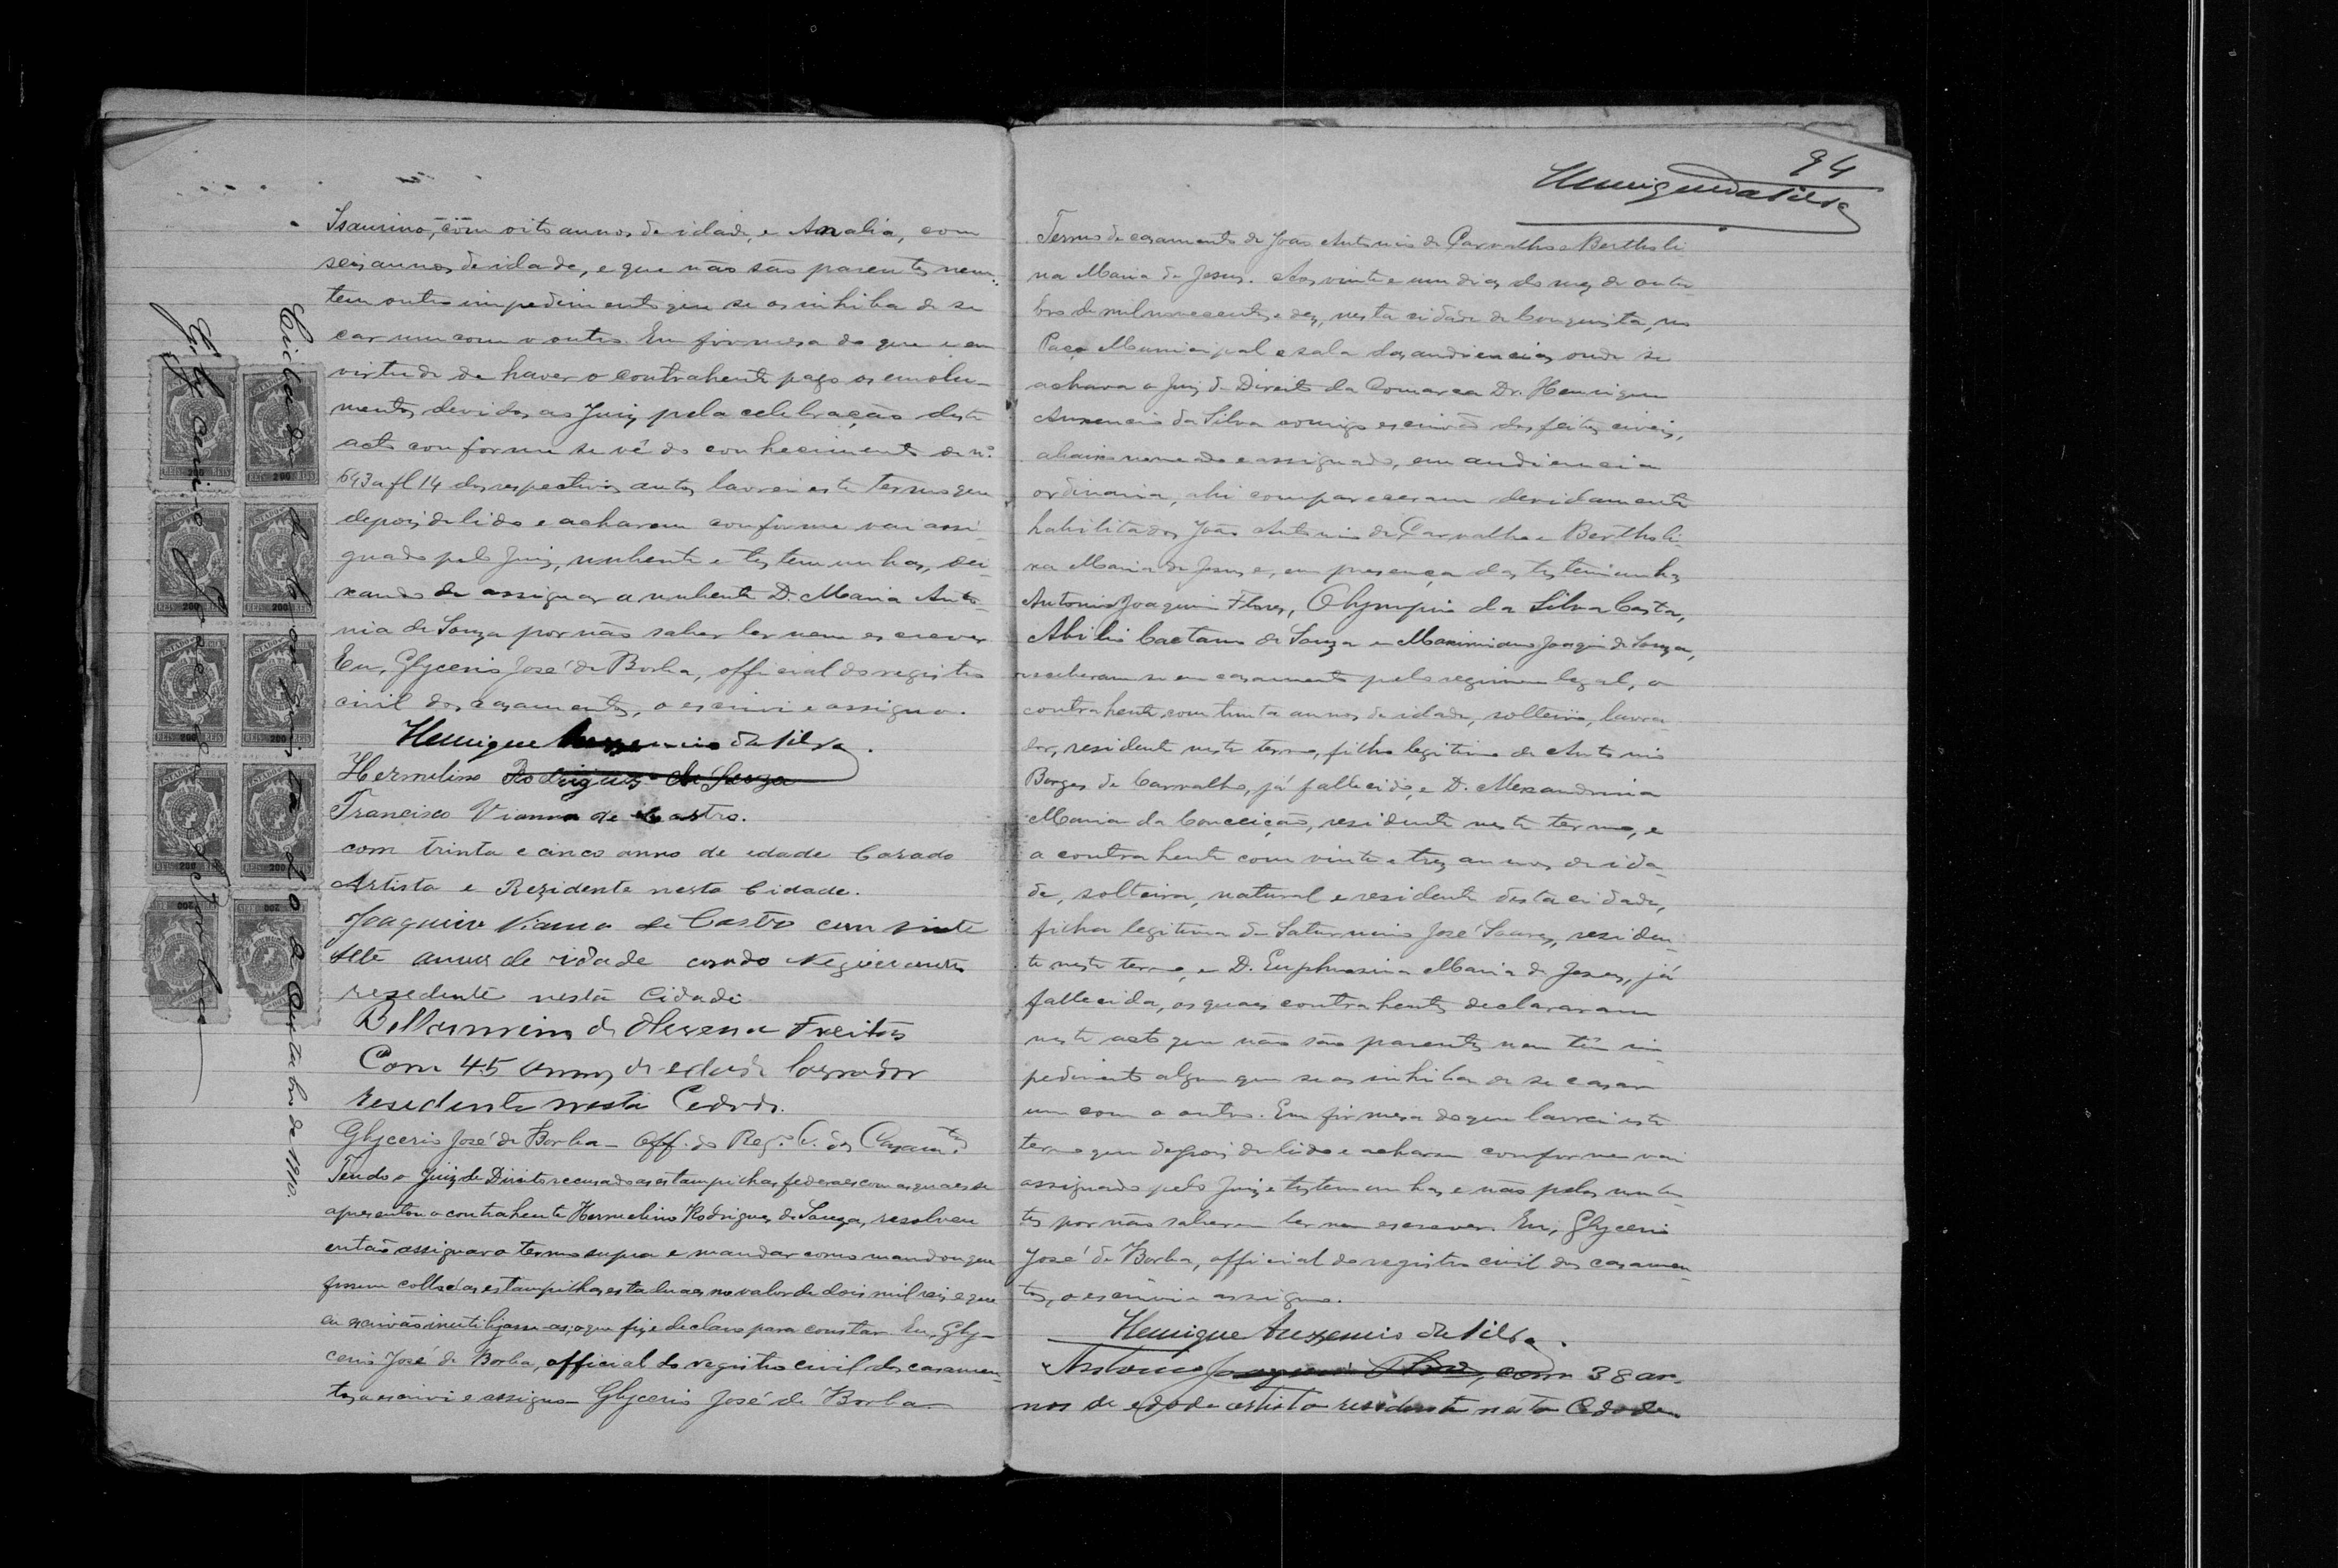 Isaurino, com oito annos de idade, e Analia, com
seis annos de idade, e que não são parentes nem
tem outro impedimento que se os inhiba de se
car um com o outro. Em firmesa do que e em
virtude de haver o contrahente pago os emolu-
mentos devidos ao Juiz pela celebração deste
acto conforme se vê do conhecimento de nº
643 a fl 14 dos respectivos autos lavrei este termo que
depois de lido e acharem conforme vai assi-
gnado pelo Juiz, nubente e testemunhas, dei-
xando de assignar a nubente D. Maria Anto-
nia de Souza por não saber ler nem escrever
Eu, Glycerio José de Borba, official do registro
civil dos casamentos, o escrivi e assigno.
Henrique Auxencio da Silva.
Hermelino Rodrigues de Souza
Francisco Vianna de Castro.
com trinta e cinco anno de edade Casado
Artista e Rezidente nesta Cidade.
Joaquim Vianna de Castro com vinte
sete annos de idade casado Negociante
resedente nesta Cidade
de Freitas
Com 45 annos de edade lavrador
residente nesta Cedade.
Glycerio José de Borba - Off. do Reg. C. dos Casamtos
Tendo o Juiz de Direito recusado as estampilhas federaes com as quaes se
apresentou o contrahente Hermelino Rodrigues de Souza, resolveu
então assignar o termo supra e mandar como mandou que
fossem colladas estampilhas estaduaes no valor de dois mil reis, e que
eu escrivão inutilizasse-as; o que fiz e declaro para constar. Eu, Gly-
cerio José de Borba, official do registro civil dos casamen-
tos, o escrivi e assigno Glycerio José de Borba
Cidade de Conquista 20 de Outubro de 1910.
Glycerio José de Borba
ESTADO
200 REIS
94
Henrique da Silva
Termo de casamento de João Antonio de Carvalho e Bertholi-
na Maria de Jesus. Aos vinte e um dias do mez de outu-
bro de mil novecentos e dez, nesta cidade de Conquista, no
Paço Municipal e sala das audiencias, onde se
achava o Juiz de Direito da Comarca Dr. Henrique
Auxencio da Silva comigo escrivão dos feitos civeis,
abaixo nomeado e assignado, em audiencia
ordinaria, ahi compareceram devidamente
habilitados João Antonio de Carvalho e Bertholi-
na Maria de Jesus e, em presença das testemunhas
Antonio Joaquim Flores, Olympio da Silva Costa,
Abilio Caetano de Souza e Maximiano Joaqim de Souza,
receberam-se em casamento pelo regimen legal, o
contrahente, com trinta annos de idade, solteiro, lavra-
dor, residente neste termo, filho legitimo de Antonio
Borges de Carvalho, já fallecido, e D. Alexandrina
Maria da Conceição, residente neste termo, e
a contrahente com vinte e tres annos de ida-
de, solteira, natural e residente desta cidade,
filha legitima de Saturnino José Soares, residen-
te neste termo, e D. Euphrosina Maria de Jesus, já
fallecida, os quaes contrahentes declararam
neste acto que não são parentes nem têm im-
pedimento algum que se os inhiba de se casar
um com o outro. Em firmesa do que lavrei este
termo que depois de lido e acharem conforme vai
assignado pelo Juiz e testemunhas e não pelos nuben-
tes por não saberem ler nem escrever. Eu, Glycerio
José de Borba, official do registro civil dos casamen-
tos, o escrivi e assigno.
Henrique Auxencio da Silva.
Antonio Joaquim Flores, com 38 an-
nos de edade artista residente nesta Cedade